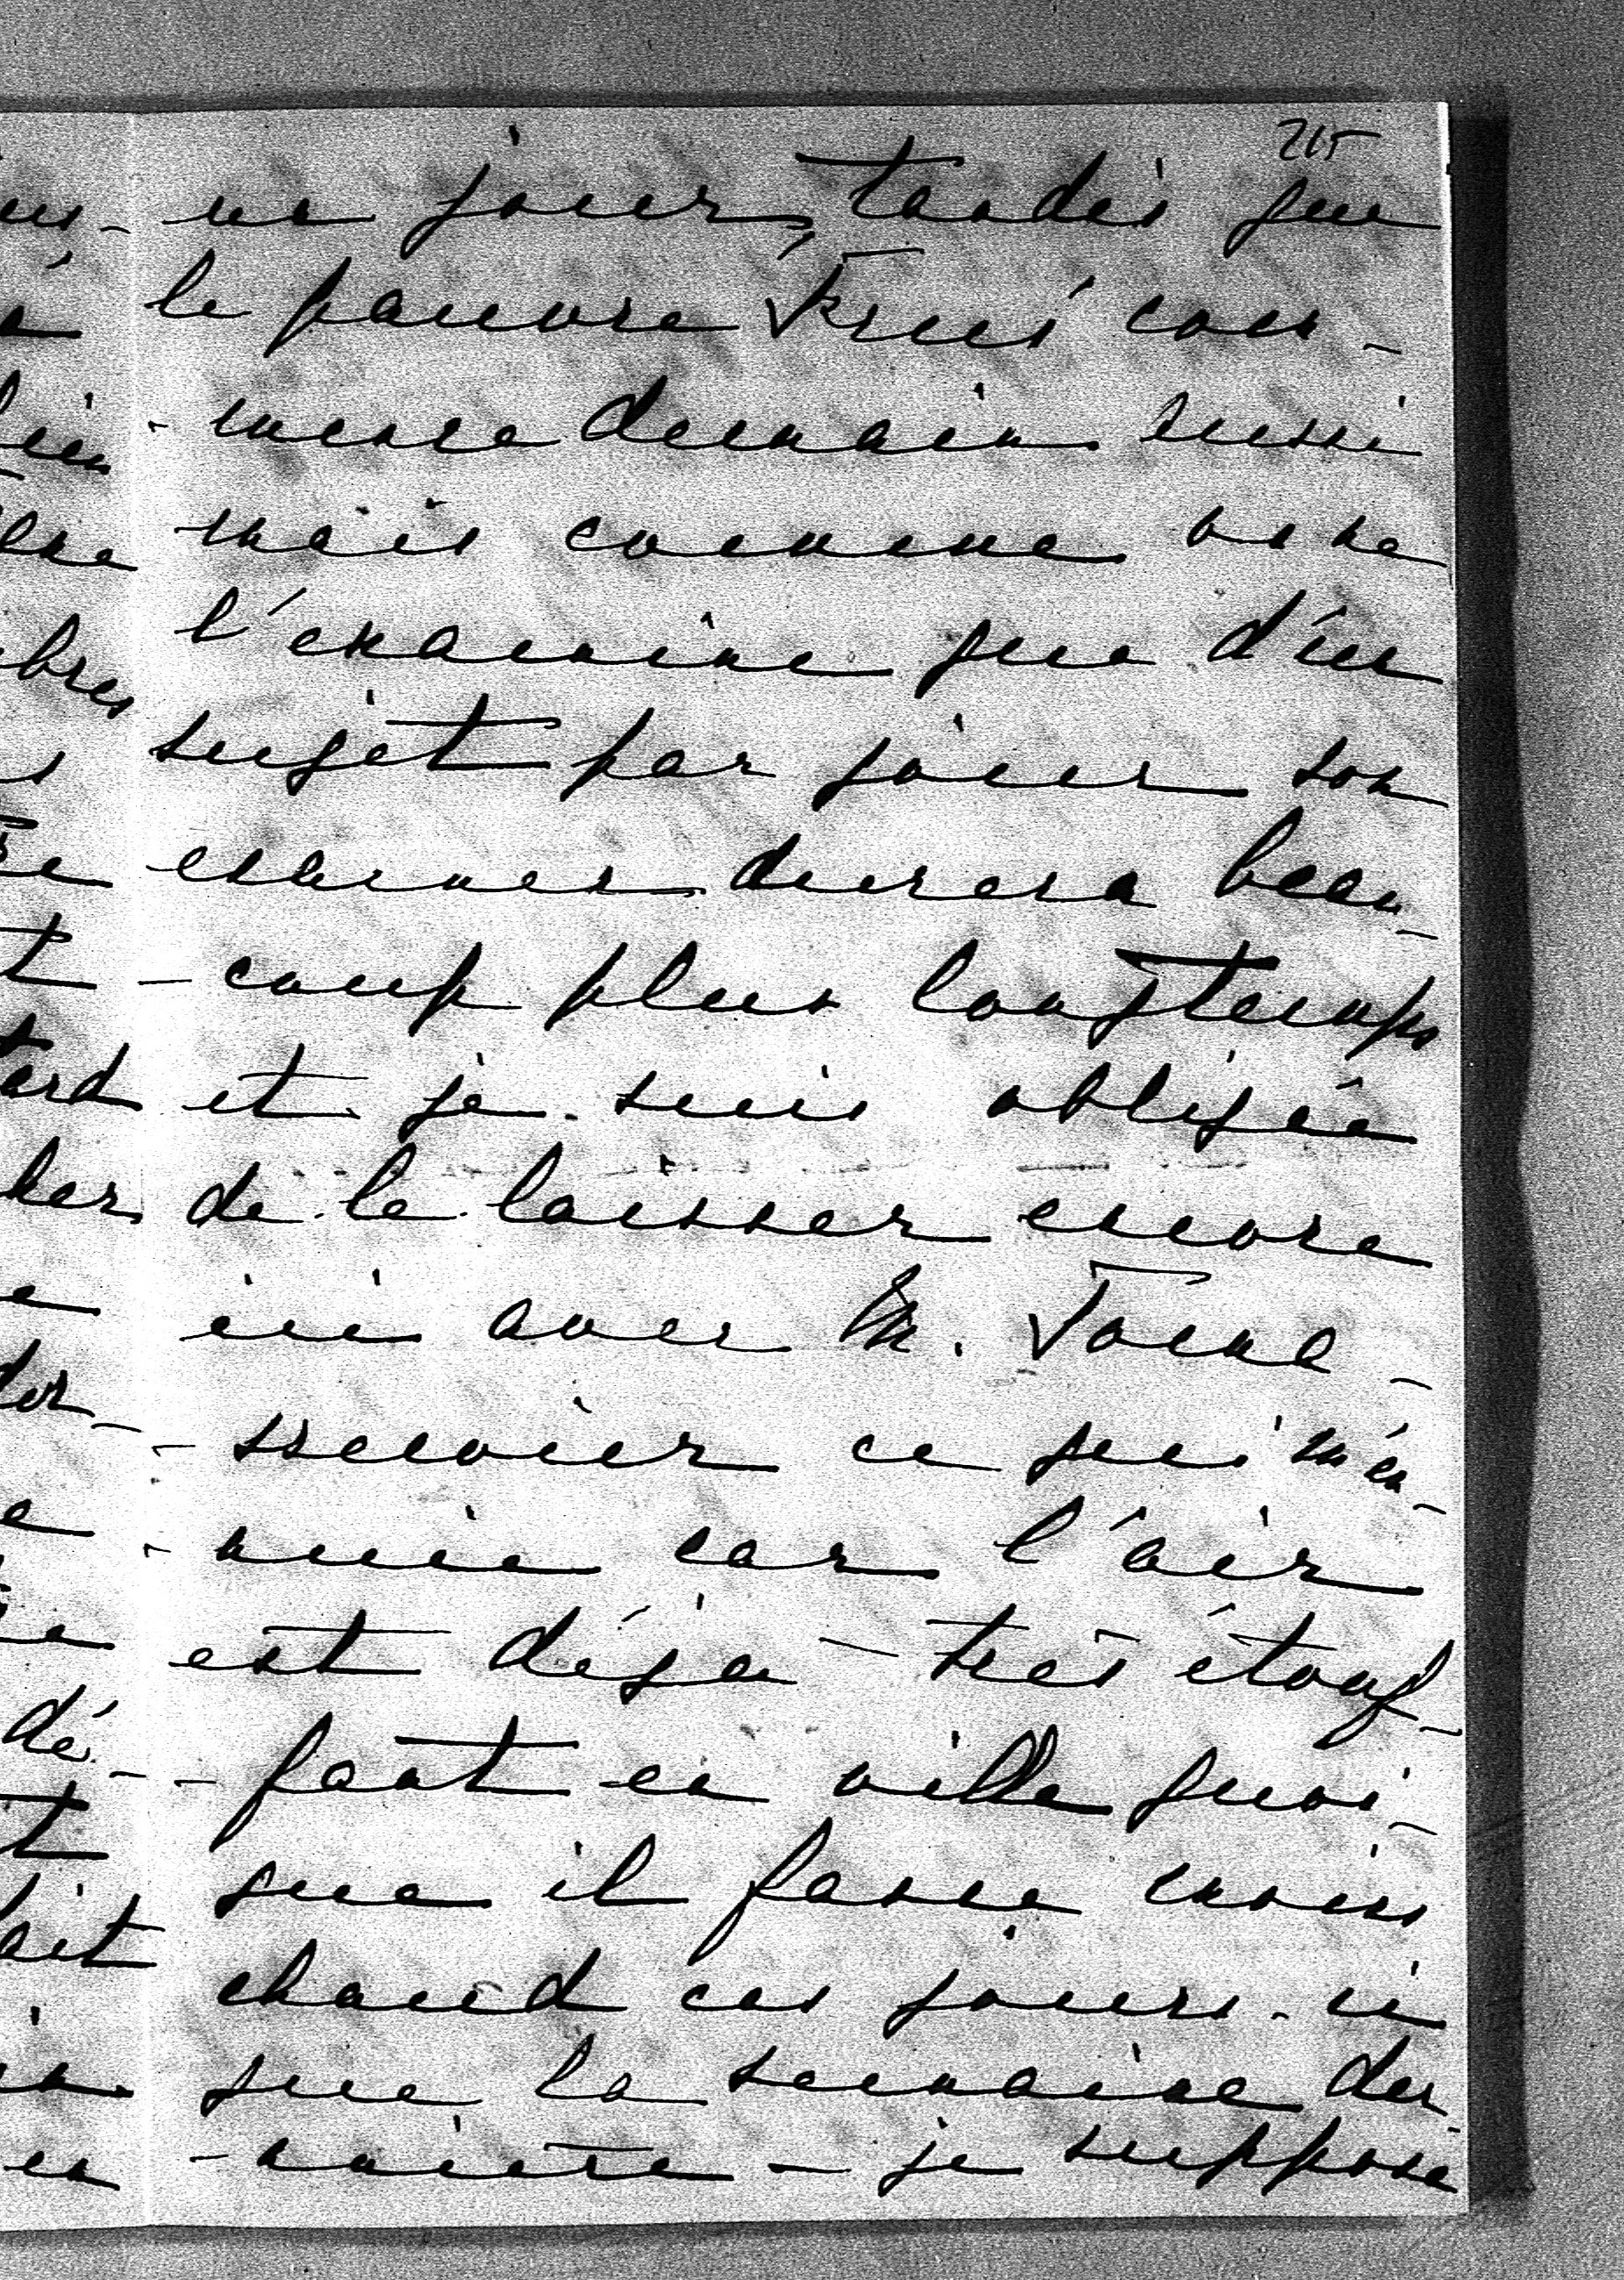 215
un jour, tandis que
le pauvre Krus' com-
-mence demain aussi
mais comme on ne
l'examine que d'un
sujet par jour son
examen durera beau-
-coup plus longtemps
et je suis obligée
de le laisser encore
ici avec M.
ce qui m'en-
-nuie car l'air
est déja très étouf-
-fant en ville quoi-
que il fasse moins
chaud ces jours-ci
que la semaine der-
-nière - je suppose